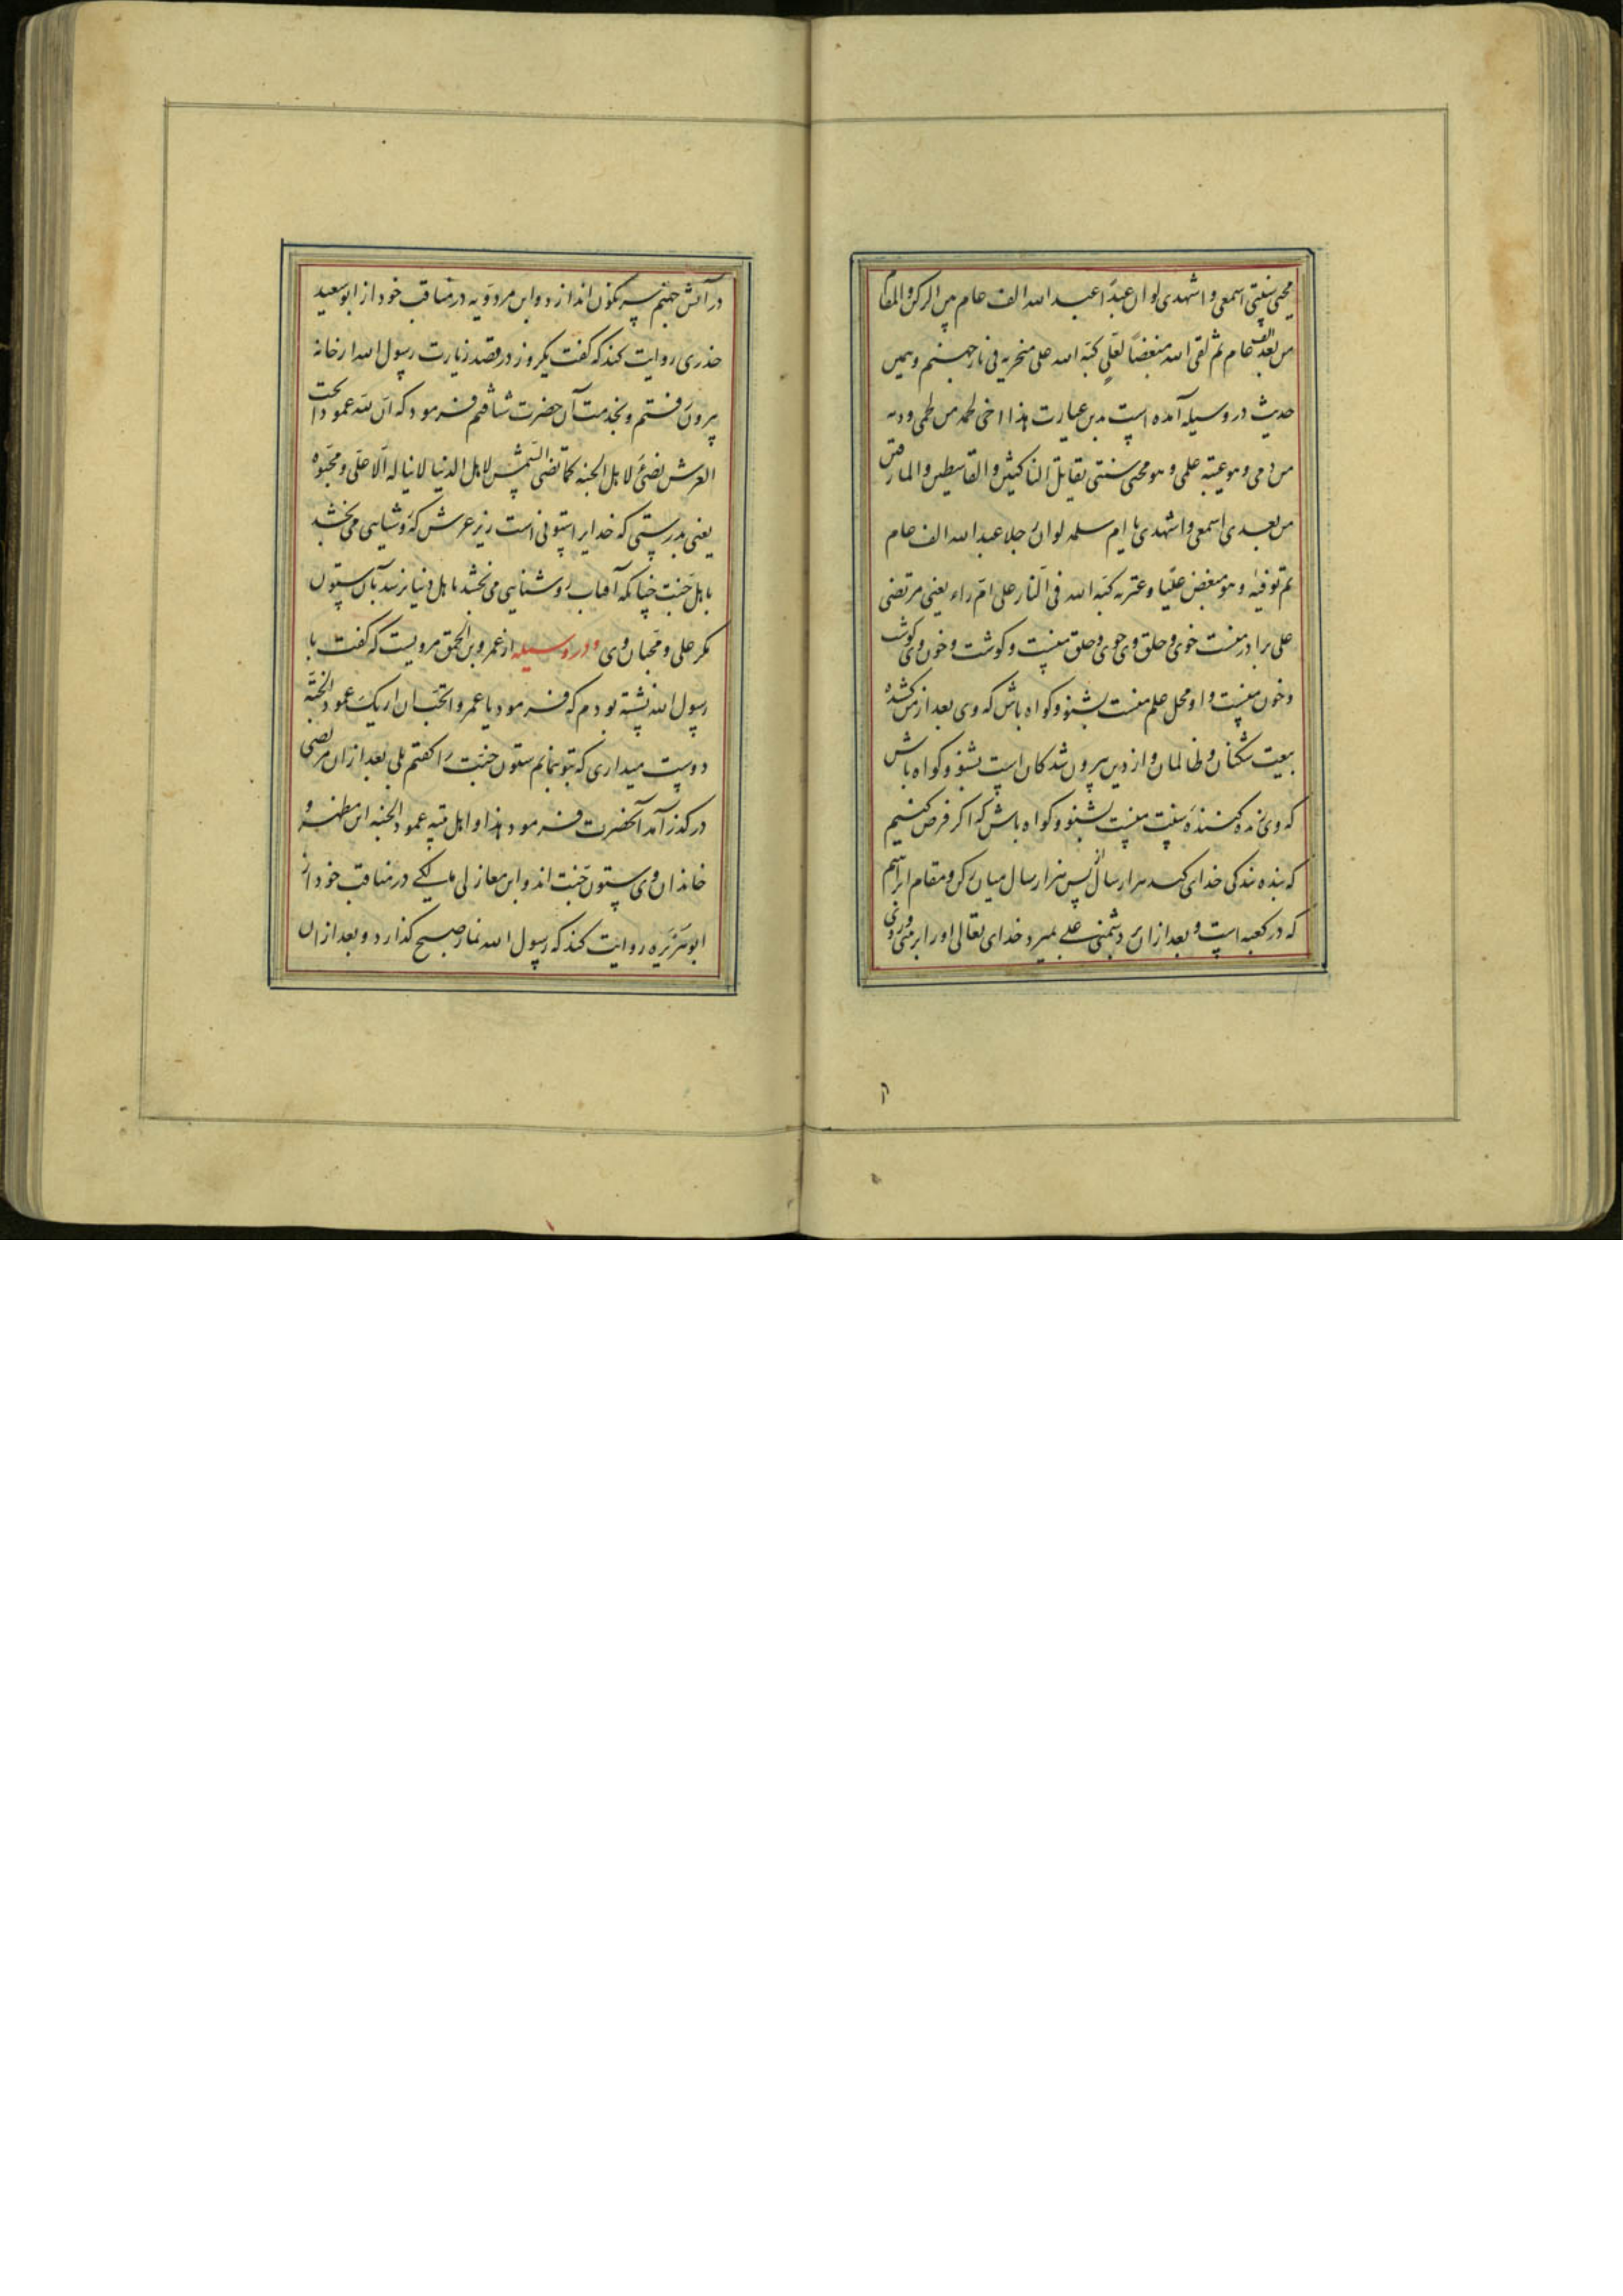 محیی سنتی اسمعی و اشهدی لو ان عبدا عبد الله الف عام بین الرکن والمقام
من بعد الف عام ثم لقی الله مبغضا لعلی کبه الله علی منخریه فی نار جهنم و همین
حدیث در وسیله آمده است بدین عبارت هذا اخی لحمه من لحمی ودمه
من دمی وهو عیبة علمی وهو محیی سنتی یقاتل الناکثین والقاسطین والمارقین
من بعدی اسمعی واشهدی یا ام سلمه لو ان رجلا عبد الله الف عام
ثم توفیه وهو مبغض علیا وعترته کبه الله فی النار علی ام راء یعنی مرتضی
علی برادر منست خوی و خلق وی خوی و خلق منست و کوشت و خون وی کوشت
و خون منست و او محل علم منست بشنو و کواه باش که وی بعد از من کشنده
بیعت شکنان و ظالمان و از دین بیرون شدکان است بشنو و کواه باش
که وی زنده کننده سنت منست بشنو و کواه باش که اکر فرض کنیم
که بنده بندکی خدای کند هزار سال از پس هزار سال میان رکن و مقام ابراهیم
که در کعبه است و بعد ازان بر دشمنی علی بمیرد خدای تعالی او را بر روی
در آتش جهنم سرنکون اندازد و ابن مردویه در مناقب خود از ابو سعید
خذری روایت کند که کفت یکروز در قصد زیارت رسول الله از خانه
بیرون رفتم و بخدمت آن حضرت شتافتم فرمود که ان لله عمودا تحت
العرش یضئ لاهل الجنه کما تضی الشمس لاهل الدنیا لا یناله الا علی ومحبوه
یعنی بدرستی که خدایرا ستونی است زیر عرش که روشنایی می بخشد
باهل جنت چنانکه آفتاب روشنایی می بخشد باهل دنیا نرسد بآن ستون
مکر علی و محبان وی و در وسیله از عمرو بن الحمق مرویست که کفت با
رسول الله نشسته بودم که فرمود یا عمرو اتحب ان اریک عمود الجنة
دوست میداری که بتو بنمایم ستون جنت را کفتم بلی بعد ازان مرتضی
در کذر آمد آنحضرت فرمود هذا و اهل بیته عمود الجنه این مظهر و
خاندان وی ستون جنت اند و ابن مغازلی مالکی در مناقب خود از
ابو هریره روایت کند که رسول الله نماز صبح کذارد و بعد ازان